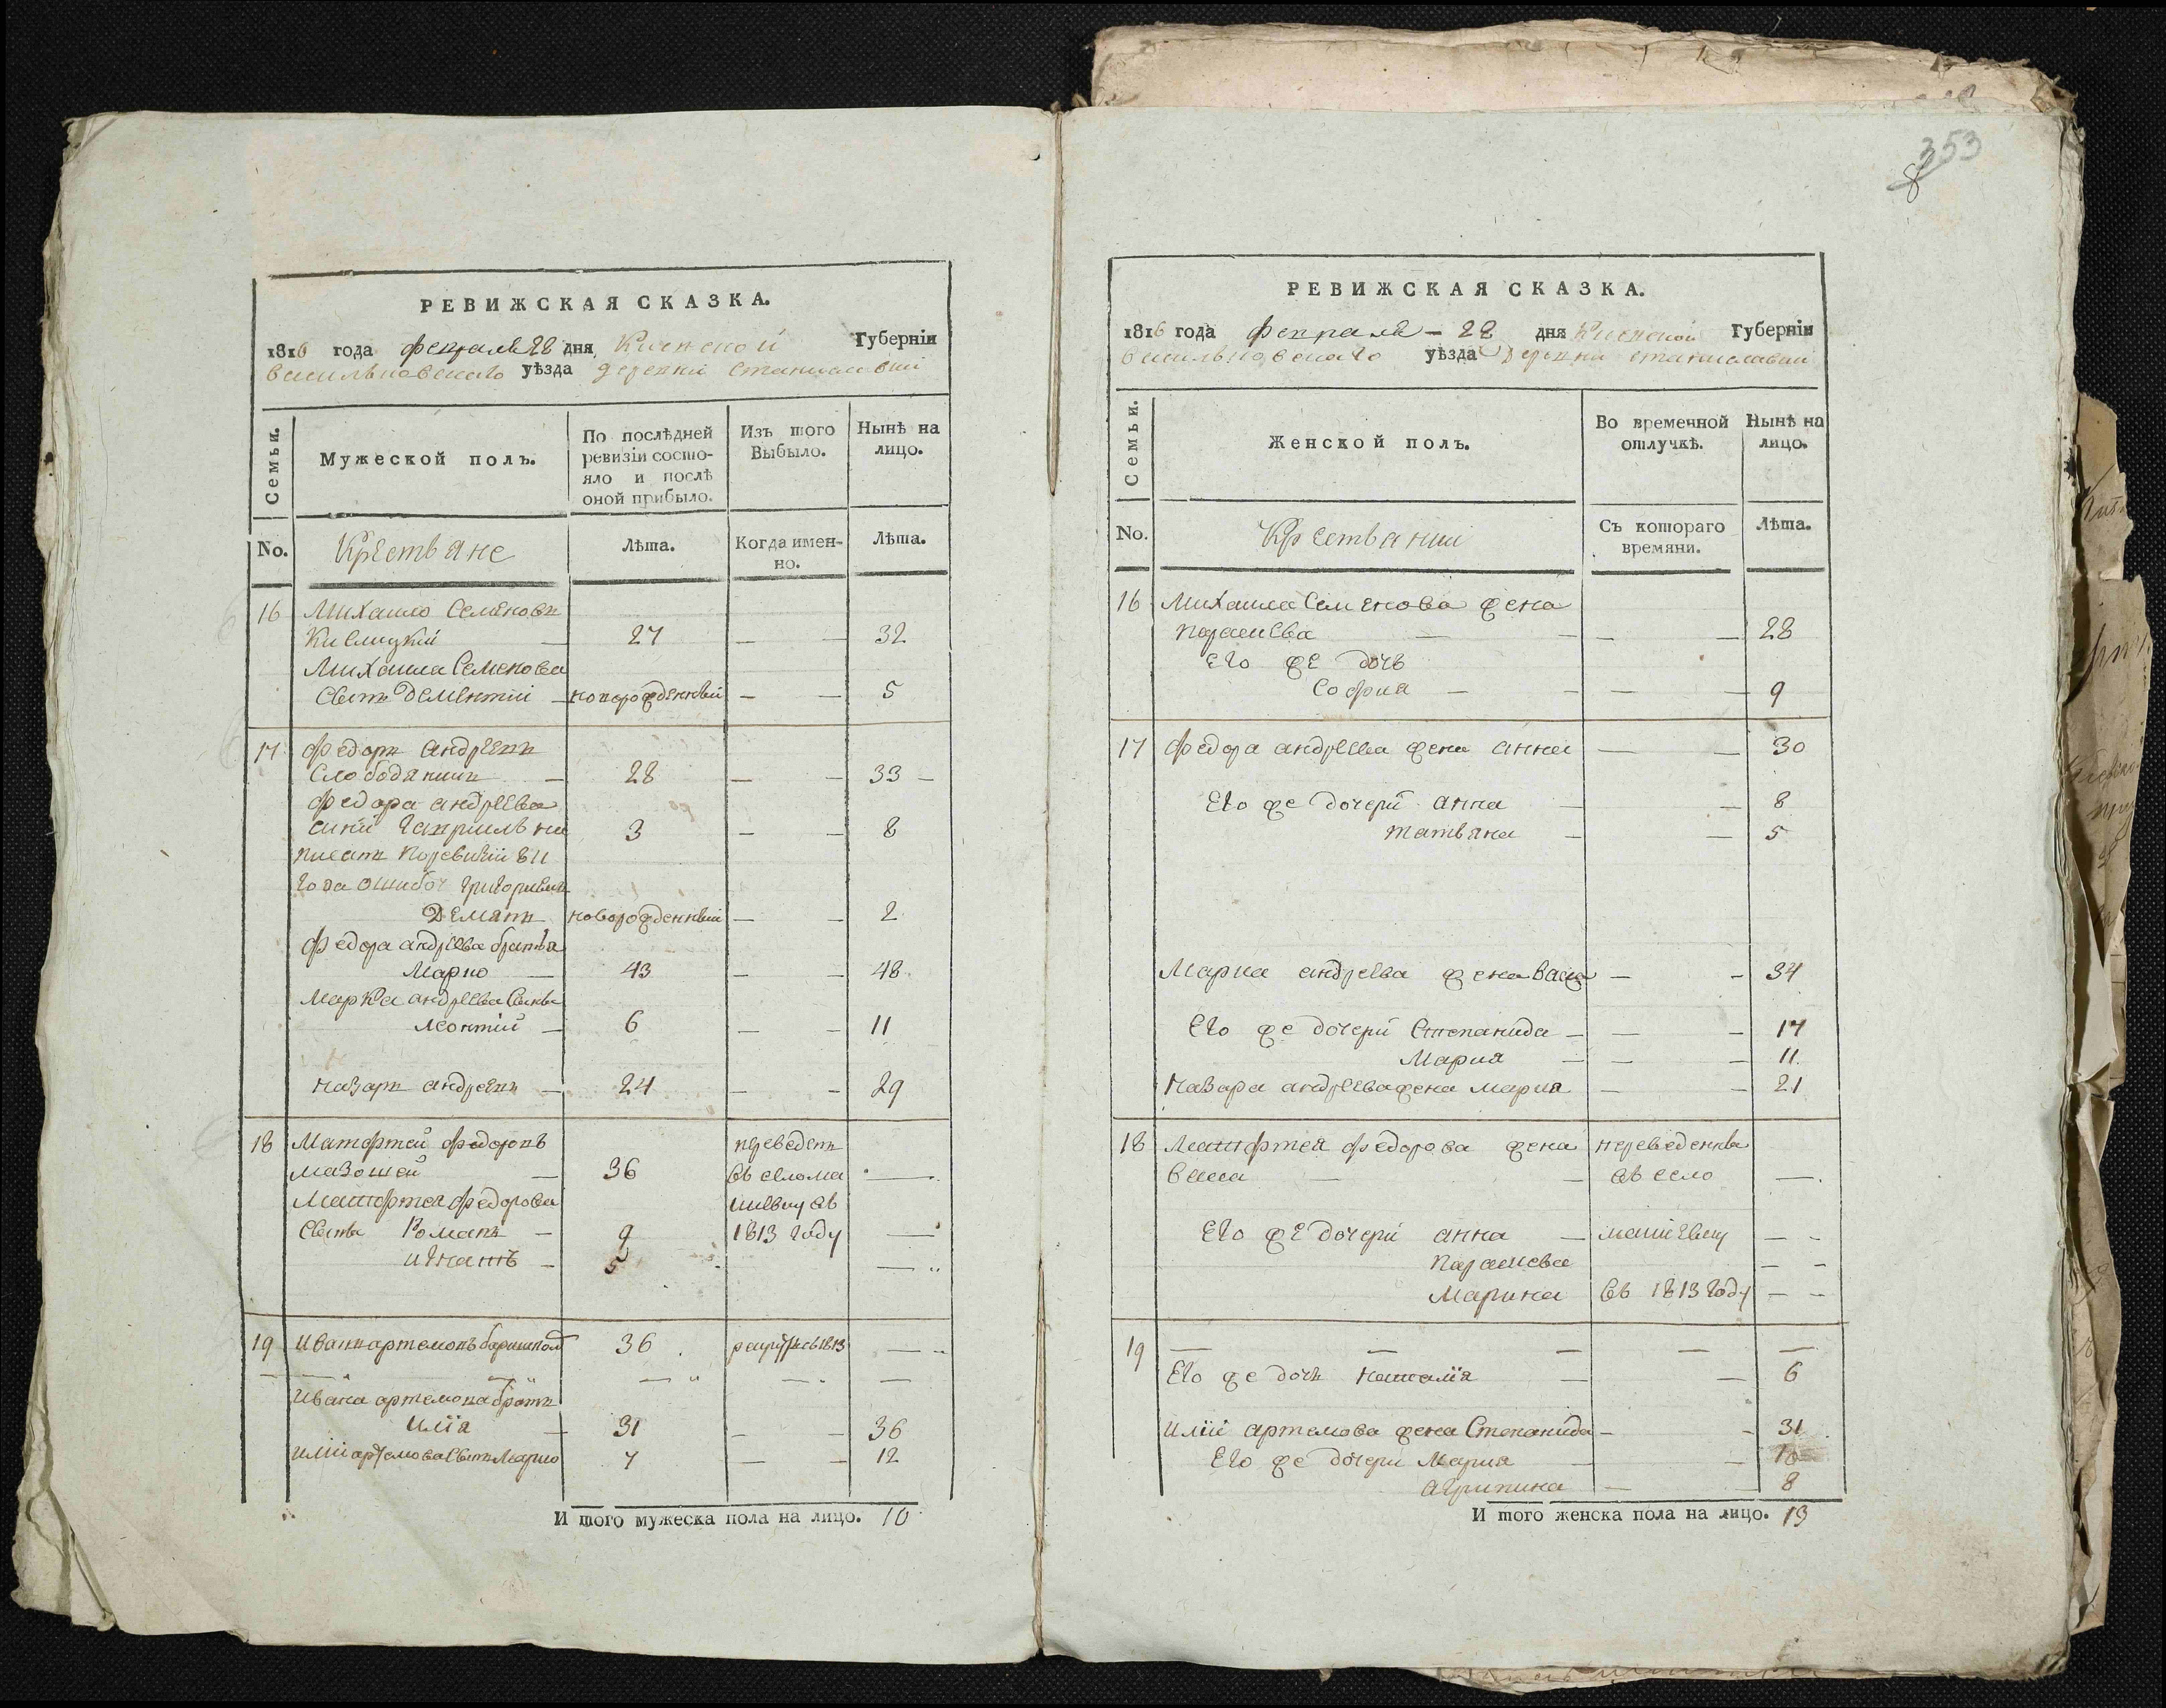 353
8
РЕВИЖСКАЯ СКАЗКА.
1816 года февраля 28 дня Киевской Губерніи
Васильковскаго уѣзда деревни Станиславки
Семьи.
Мужеской полъ.
По послѣдней ревизіи состояло и послѣ оной прибыло.
Изъ того Выбыло.
Нынѣ на лицо.
No.
Крестьяне
Лѣта.
Когда именно.
Лѣта.
16 Михайло Семеновъ
Кислицкій — 27 — — 32
Михайла Семенова
Сынъ Дементій — новорожденный — — 5
17 Федоръ Андреевъ
Слободяникъ — 28 — — 33 —
Федора Андреева
сынъ Гаврилъ не 3 — — 8
писанъ по ревизіи 811
года ошибоч Григоріемъ
Демянъ новорожденный — — 2
Федора андреева братья
Марко — 43 — — 48
Марка андреева Сынъ
Леонтій — 6 — — 11
Назаръ андреевъ — 24 — — 29
18 Матофтей Федоровъ переведенъ
Мазошей — 36 въ село Ма — .
Матофтея Федорова шевку въ
Сыны Романъ — 9 1813 году — .
Игнатъ — 5 — „
19 Иванъ артемовъ 36 рекрутъ въ 1813 — „
Ивана артемова братъ
Илія — 31 — — 36
Иліи артемова Сынъ Марко 7 — — 12
И того мужеска пола на лицо. 10
РЕВИЖСКАЯ СКАЗКА.
1816 года Февраля — 28 дня Киевской Губерніи
Васильковскаго уѣзда Деревни Станиславки
Семьи.
Женской полъ.
Во временной отлучкѣ.
Нынѣ на лицо.
No.
Крестьянки
Съ котораго времяни.
Лѣта.
16 Михайла Семенова жена
Параскева — — — — 28
Его же дочь
София — — — — 9
17 Федора андреева жена Анна — — 30
Его же дочери Анна — — 8
Татьяна — — 5
Марка андреева жена Васа — — 34
Его же дочери Степанида — — — 17
Мария — — — 11
Назара андреева жена Мария — — 21
18 Матофтея Федорова жена переведены
Васа — — въ село — .
Его же дочери анна — Машевку — -
Параскева — -
Марина въ 1813 году — -
19 — — — —
Его же дочь Наталія — — 6
Иліи артемова жена Степанида — - 31
Его же дочери Мария — — 10
Агрипина — — 8
И того женска пола на лицо. 13